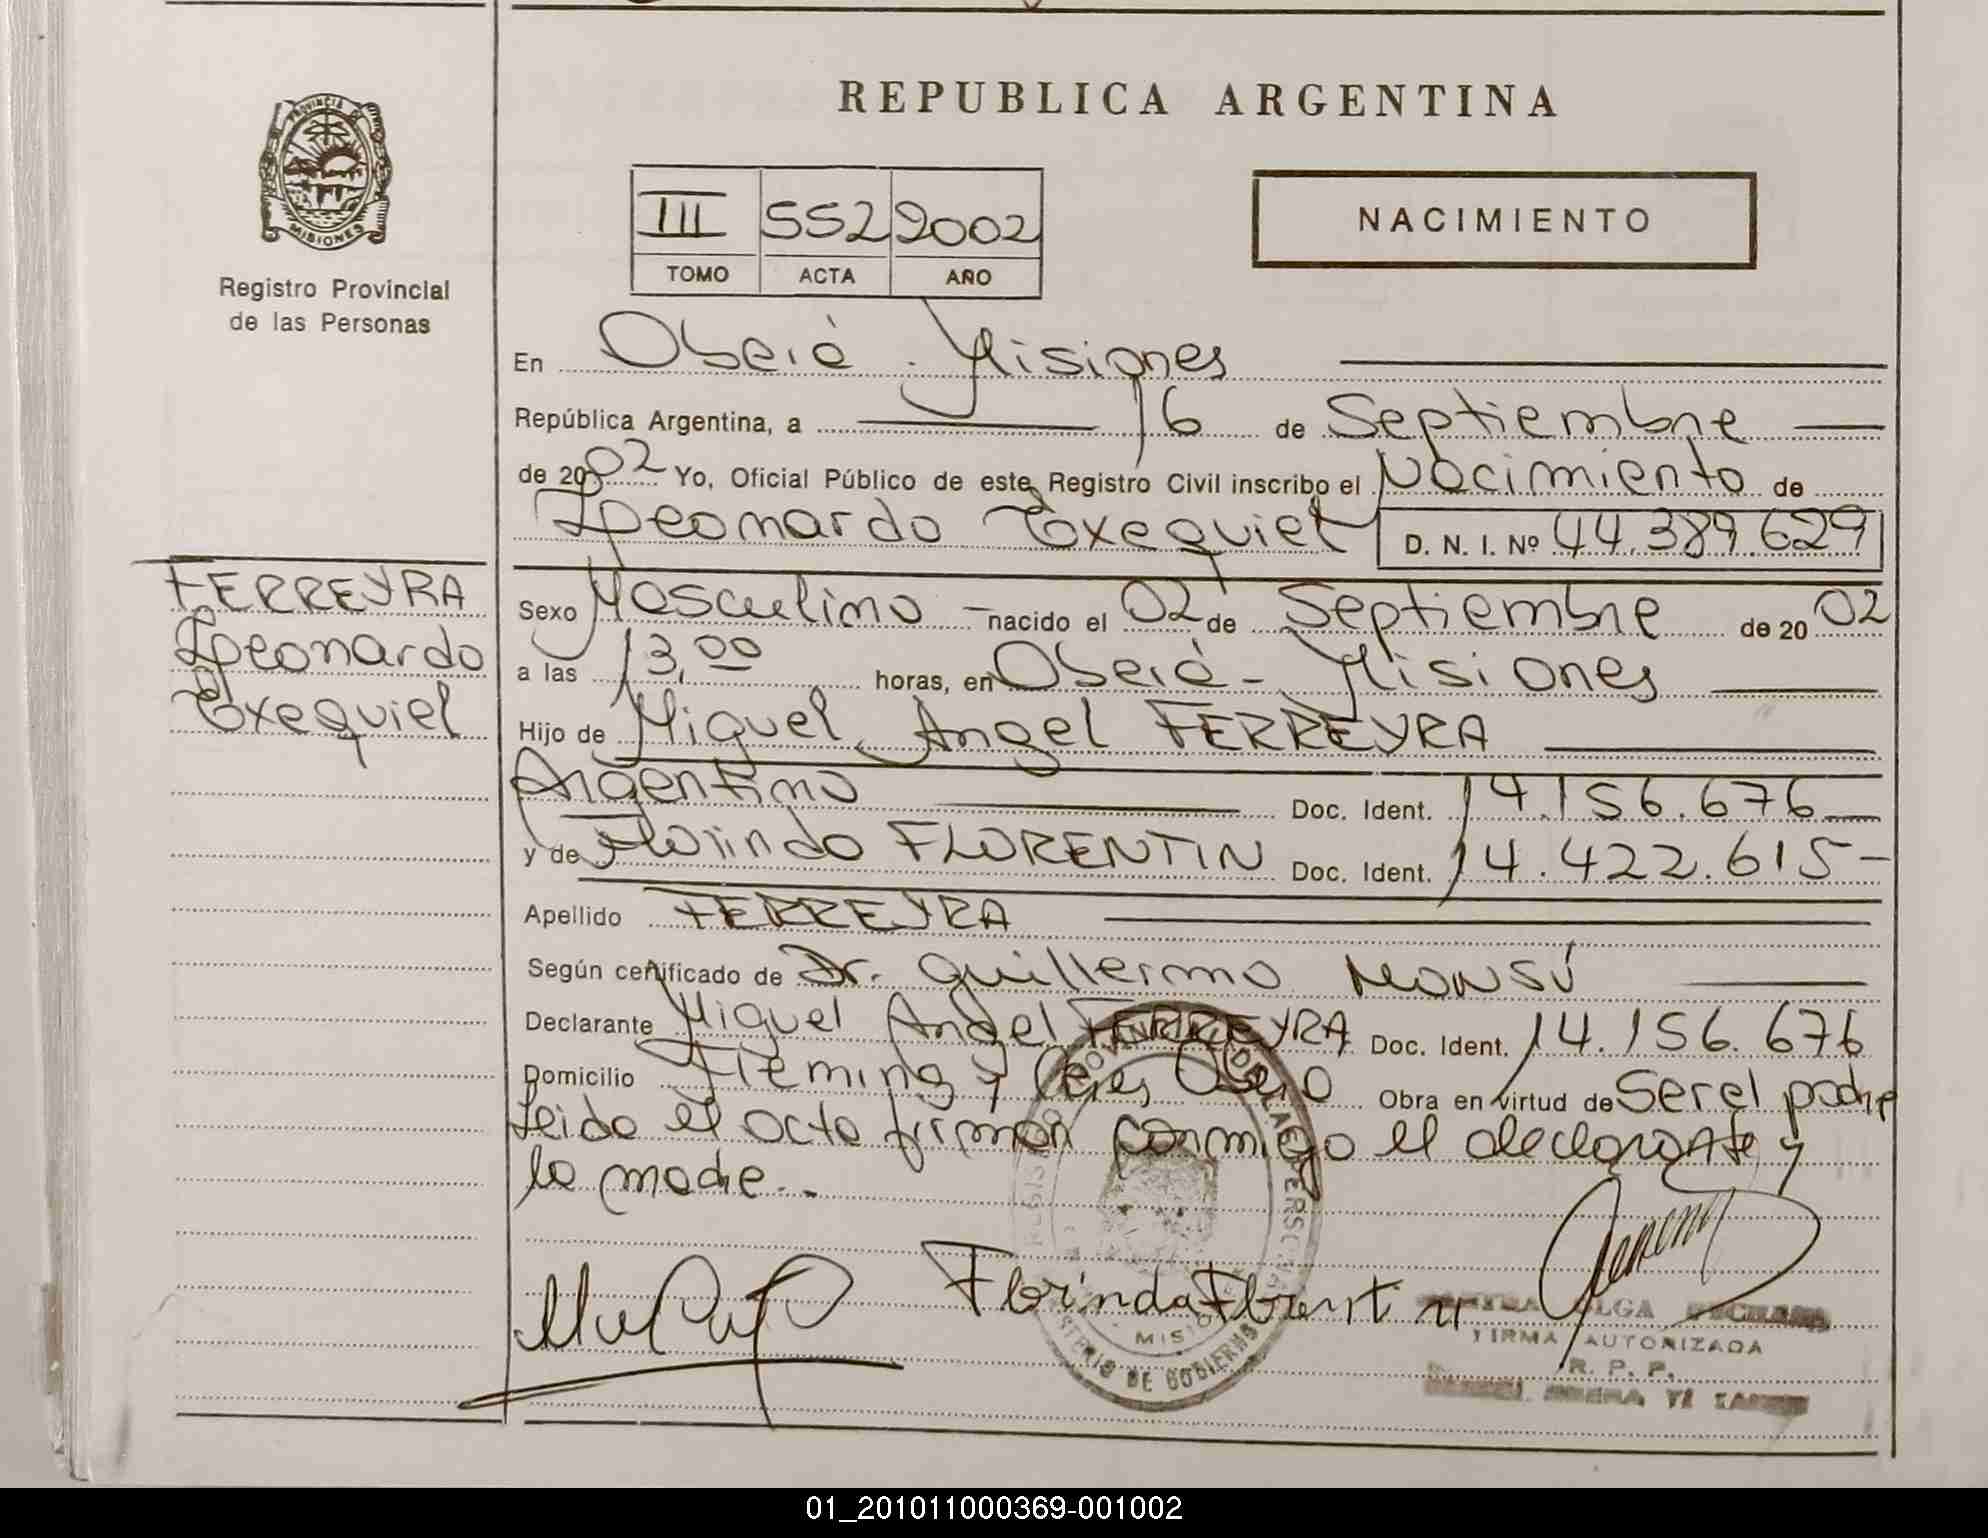 REPUBLICA ARGENTINA
PROVINCIA DE MISIONES
Registro Provincial
de las Personas
III 552 2002
TOMO ACTA AÑO
NACIMIENTO
En Oberá - Misiones
República Argentina, a 16 de Septiembre
de 2002 Yo, Oficial Público de este Registro Civil inscribo el Nacimiento de
Leonardo Exequiel D. N. I. Nº 44.389.629
FERREYRA
Leonardo
Exequiel
Sexo Masculino - nacido el 02 de Septiembre de 2002
a las 13,00 horas, en Oberá - Misiones
Hijo de Miguel Angel FERREYRA
Argentino Doc. Ident. 14.156.676
y de Florinda FLORENTIN Doc. Ident. 14.422.615-
Apellido FERREYRA
Según certificado de Dr. Guillermo MONSÚ
Declarante Miguel Angel FERREYRA Doc. Ident. 14.156.676
Domicilio Fleming y Ceres Oberá Obra en virtud de Ser el padre
Leida el acta firman conmigo el declarante y
la madre..
Florinda Florentin
OLGA
FIRMA AUTORIZADA
R. P. P.
MINISTERIO DE GOBIERNO
01_201011000369-001002